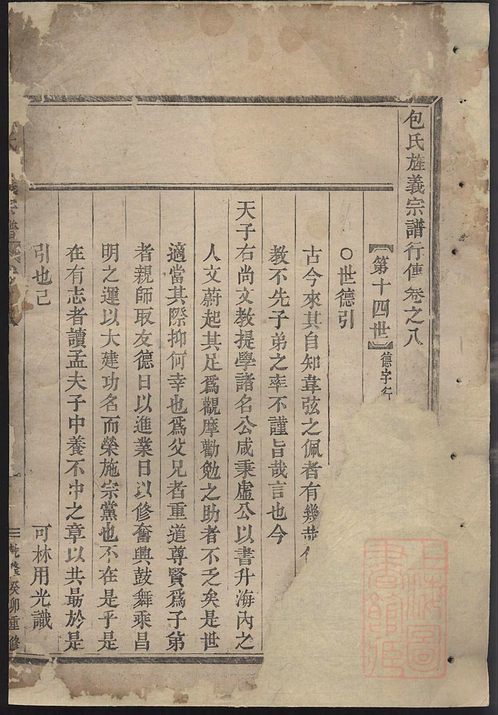 包氏旌義宗譜行傳卷之八
【第十四世】德字行
○世德引
古今來其自知韋弦之佩者有幾哉
教不先子弟之率不謹旨哉言也今
天子右尚文教提學諸名公咸秉虛公以書升海內之
人文蔚起其足爲觀摩勸勉之助者不乏矣是世
適當其際抑何幸也爲父兄者重道尊賢爲子弟
者親師取友德日以進業日以修奮興鼓舞乘昌
明之運以大建功名而榮施宗黨也不在是乎是
在有志者讀孟夫子中養不中之章以共勗於是
引也已
可林用光識
乾隆癸卯重修
上海圖書館藏